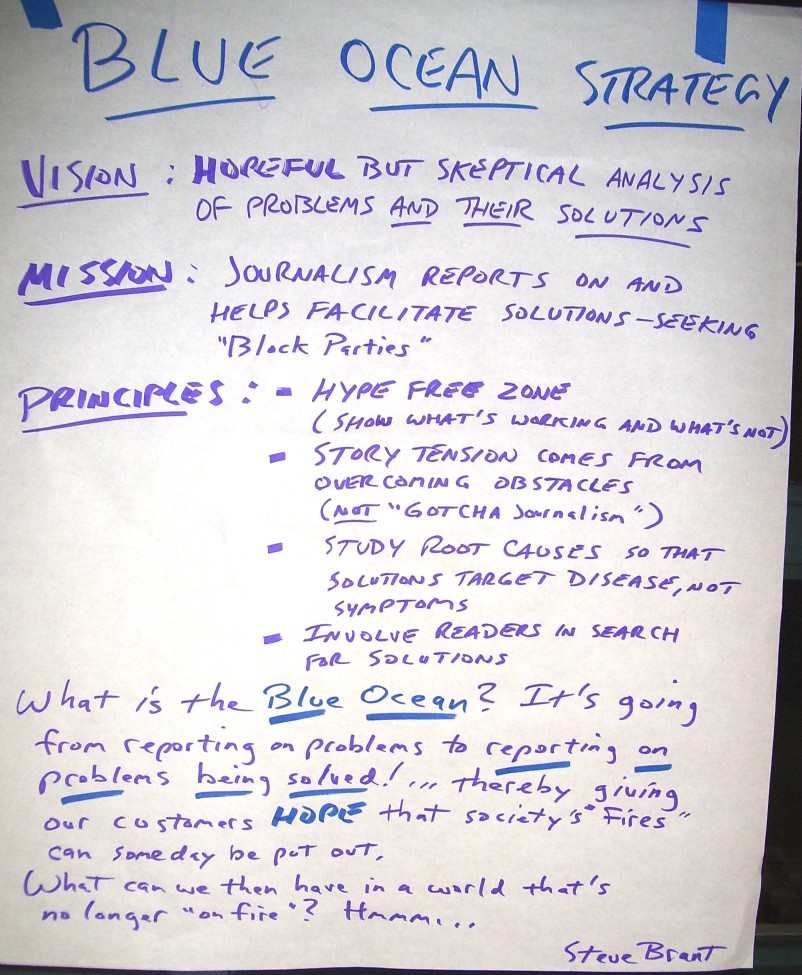 BLUE OCEAN STRATEGY
VISION: HOPEFUL BUT SKEPTICAL ANALYSIS
OF PROBLEMS AND THEIR SOLUTIONS
MISSION: JOURNALISM REPORTS ON AND
HELPS FACILITATE SOLUTIONS-SEEKING
"Block Parties"
PRINCIPLES: - HYPE FREE ZONE
(SHOW WHAT'S WORKING AND WHAT'S NOT)
- STORY TENSION COMES FROM
OVERCOMING OBSTACLES
(NOT "GOTCHA Journalism")
- STUDY ROOT CAUSES SO THAT
SOLUTIONS TARGET DISEASE, NOT
SYMPTOMS
- INVOLVE READERS IN SEARCH
FOR SOLUTIONS
What is the Blue Ocean? It's going
from reporting on problems to reporting on
problems being solved!... thereby giving
our customers HOPE that society's "Fires"
can someday be put out.
What can we then have in a world that's
no longer "on fire"? Hmmm...
Steve Brant